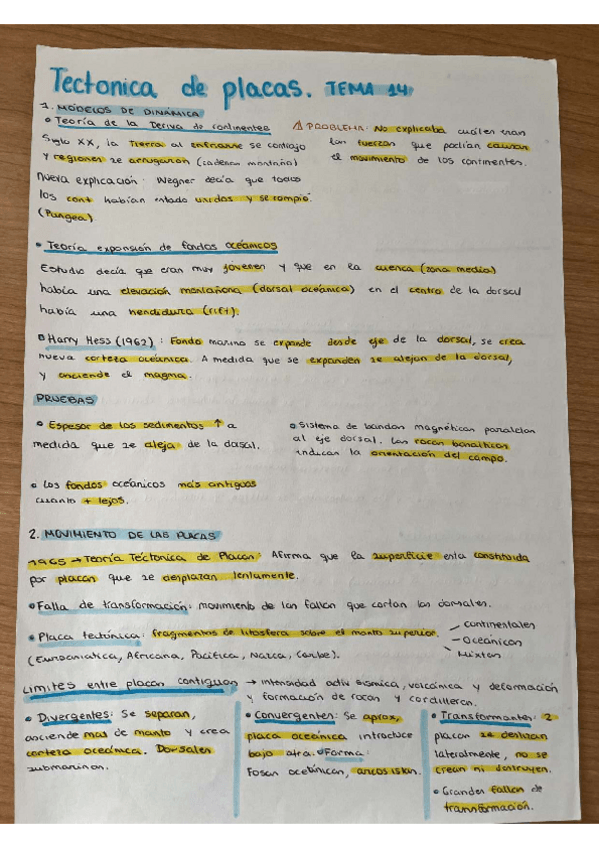 Tectonica de placas. TEMA 14
1. MODELOS DE DINÁMICA
• Teoría de la Deriva de continentes
Siglo XX, la Tierra al enfriarse se contrajo
y regiones se arrugaron (cadena montaña)
Nueva explicación: Wegner decía que todos
los cont habían estado unidos y se rompió.
(Pangea)
⚠ PROBLEMA: No explicaba cuáles eran
las fuerzas que podían causar
el movimiento de los continentes.
• Teoría expansión de fondos oceánicos
Estudio decía que eran muy jóvenes y que en la cuenca (zona media)
había una elevación montañosa (dorsal oceánica) en el centro de la dorsal
había una hendidura (rift).
Harry Hess (1962): Fondo marino se expande desde eje de la dorsal, se crea
nueva corteza oceánica. A medida que se expanden se alejan de la dorsal,
y asciende el magma.
PRUEBAS
• Espesor de los sedimentos ↑ a
medida que se aleja de la dosal.
• Sistema de bandas magnéticas paralelas
al eje dorsal. Las rocas basálticas
indican la orientación del campo.
• Los fondos oceánicos más antiguos
cuanto + lejos.
2. MOVIMIENTO DE LAS PLACAS
1965 → Teoría Tectónica de Placas: Afirma que la superficie esta constituida
por placas que se desplazan lentamente.
• Falla de transformación: movimiento de las fallas que cortan las dorsales.
• Placa tectónica: fragmentos de litosfera sobre el manto superior.
continentales
– Oceánicas
Mixtas
(Euroasiatica, Africana, Pacífica, Nazca, Caribe).
Límites entre placas contiguas → intensidad activ sísmica, volcánica y deformación
y formación de rocas y cordilleras.
• Divergentes: Se separan,
asciende mas de manto y crea
corteza oceánica. Dorsales
submarinas.
• Convergentes: Se aprox,
placa oceánica introduce
bajo otra. • Forma:
Fosas oceánicas, arcos islas.
• Transformantes: 2
placas se deslizan
lateralmente, no se
crean ni destruyen.
• Grandes fallas de
transformación.